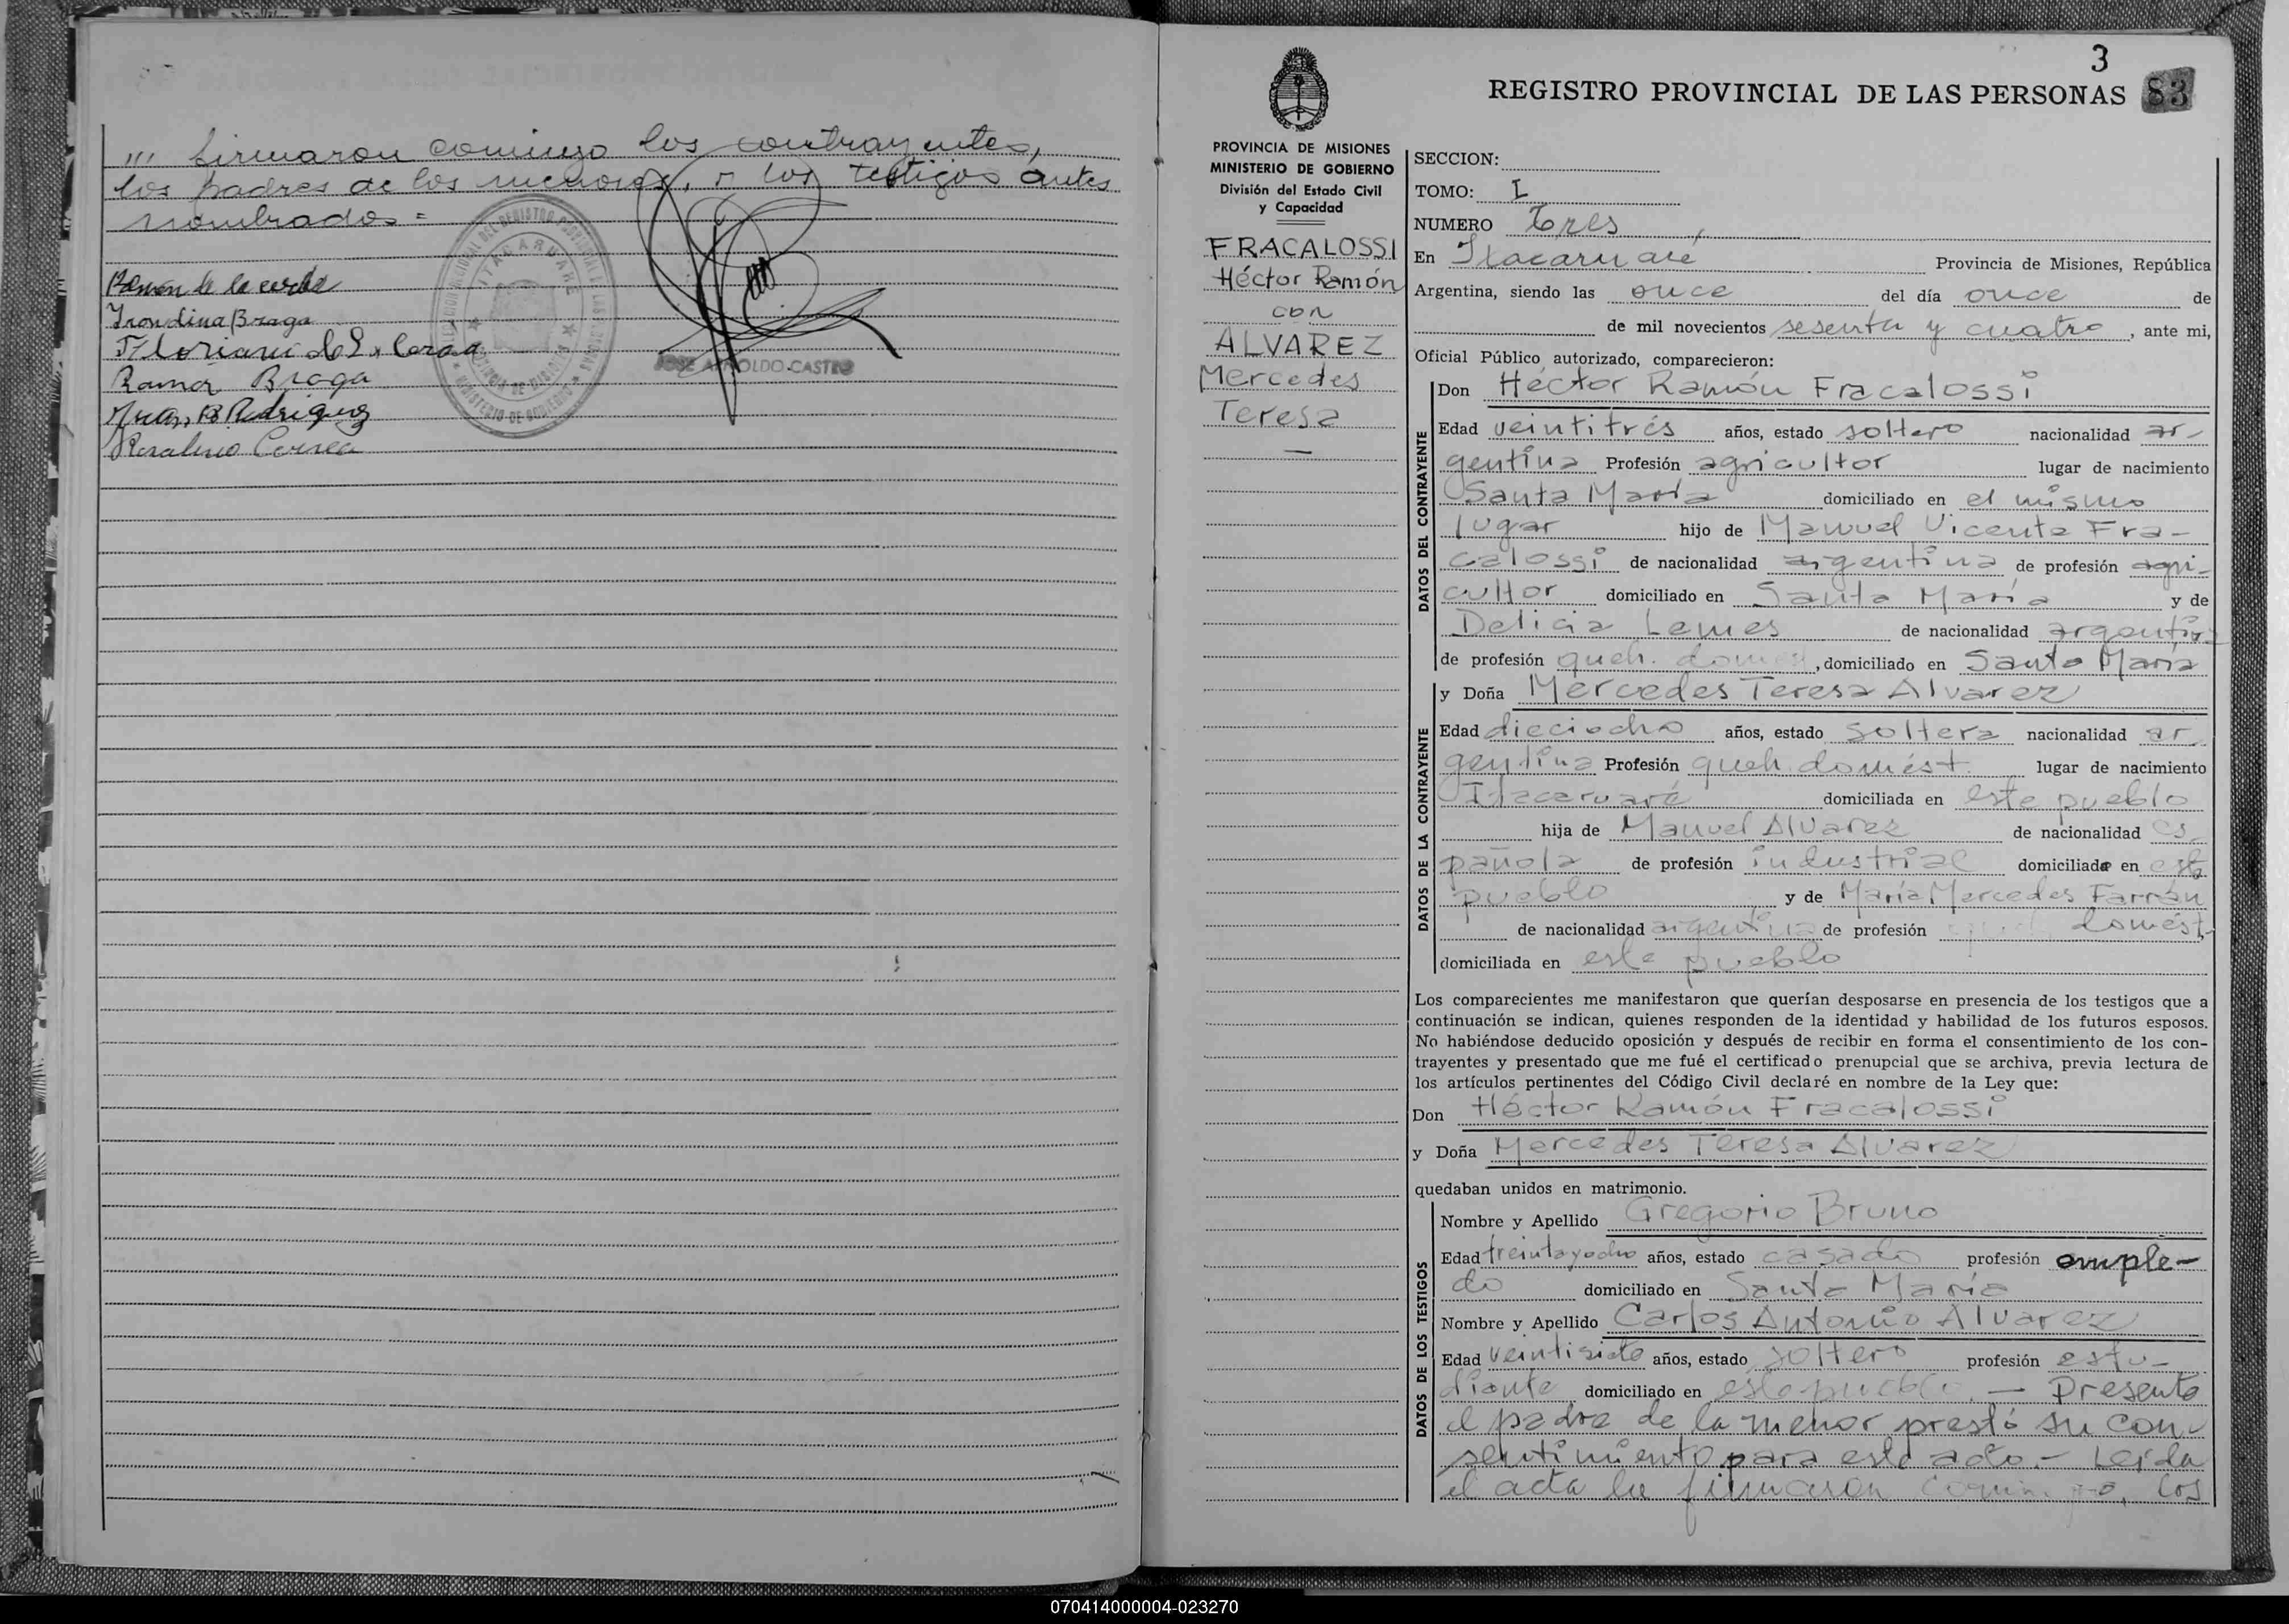 ''' firmaron conmigo los contrayentes,
los padres de los menores, y los testigos antes
nombrados =
Ramón de la cerda
Irondina Braga
Ramón Braga
Juan B Rodriguez
Rosalino Correa
ITACARUARE
MINISTERIO DE GOBIERNO
JOSE ARNOLDO CASTRO
3
REGISTRO PROVINCIAL DE LAS PERSONAS 83
PROVINCIA DE MISIONES
MINISTERIO DE GOBIERNO
División del Estado Civil
y Capacidad
FRACALOSSI
Héctor Ramón
con
ALVAREZ
Mercedes
Teresa
—
SECCION:
TOMO: I
NUMERO Tres
En Itacaruaré Provincia de Misiones, República
Argentina, siendo las once del día once de
de mil novecientos sesenta y cuatro, ante mi,
Oficial Público autorizado, comparecieron:
DATOS DEL CONTRAYENTE
Don Héctor Ramón Fracalossi
Edad veintitrés años, estado soltero nacionalidad ar-
gentina Profesión agricultor lugar de nacimiento
Santa María domiciliado en el mismo
lugar hijo de Manuel Vicente Fra-
calossi de nacionalidad argentina de profesión agri-
cultor domiciliado en Santa María y de
Delicia Lemes de nacionalidad argentina
de profesión queh. domes, domiciliado en Santa María
DATOS DE LA CONTRAYENTE
y Doña Mercedes Teresa Alvarez
Edad dieciocho años, estado soltera nacionalidad ar-
gentina Profesión queh. domést. lugar de nacimiento
Itacaruaré domiciliada en este pueblo
hija de Manuel Alvarez de nacionalidad es-
pañola de profesión industrial domiciliado en este
pueblo y de María Mercedes Farrán
de nacionalidad argentina de profesión domést.
domiciliada en este pueblo
Los comparecientes me manifestaron que querían desposarse en presencia de los testigos que a
continuación se indican, quienes responden de la identidad y habilidad de los futuros esposos.
No habiéndose deducido oposición y después de recibir en forma el consentimiento de los con-
trayentes y presentado que me fué el certificado prenupcial que se archiva, previa lectura de
los artículos pertinentes del Código Civil declaré en nombre de la Ley que:
Don Héctor Ramón Fracalossi
y Doña Mercedes Teresa Alvarez
quedaban unidos en matrimonio.
DATOS DE LOS TESTIGOS
Nombre y Apellido Gregorio Bruno
Edad treinta y ocho años, estado casado profesión emplea-
do domiciliado en Santa María
Nombre y Apellido Carlos Antonio Alvarez
Edad veintisiete años, estado soltero profesión estu-
diante domiciliado en este pueblo. — Presente
el padre de la menor prestó su con-
sentimiento para este acto. — Leída
el acta la firmaron conmigo, los
070414000004-023270